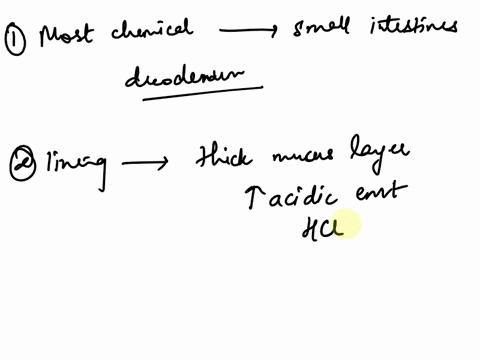 ① Most chemical → small intestines
duodenum
② lining → thick mucus layer
↑ acidic envt
HCl